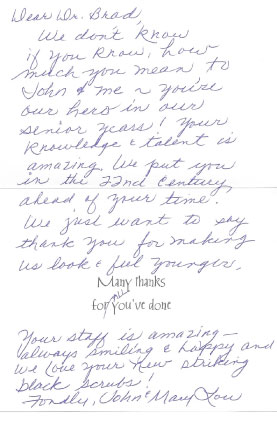 Dear Dr. Brad,
We don't know
if you know, how
much you mean to
John & me ~ you're
our hero in our
senior years! Your
knowledge & talent is
amazing. We put you
in the 22nd Century,
ahead of your time!
We just want to say
thank you for making
us look & feel younger.
Many thanks
for all you've done
Your staff is amazing—
always smiling & happy and
we love your new striking
black scrubs!
Fondly, John & Mary Lou